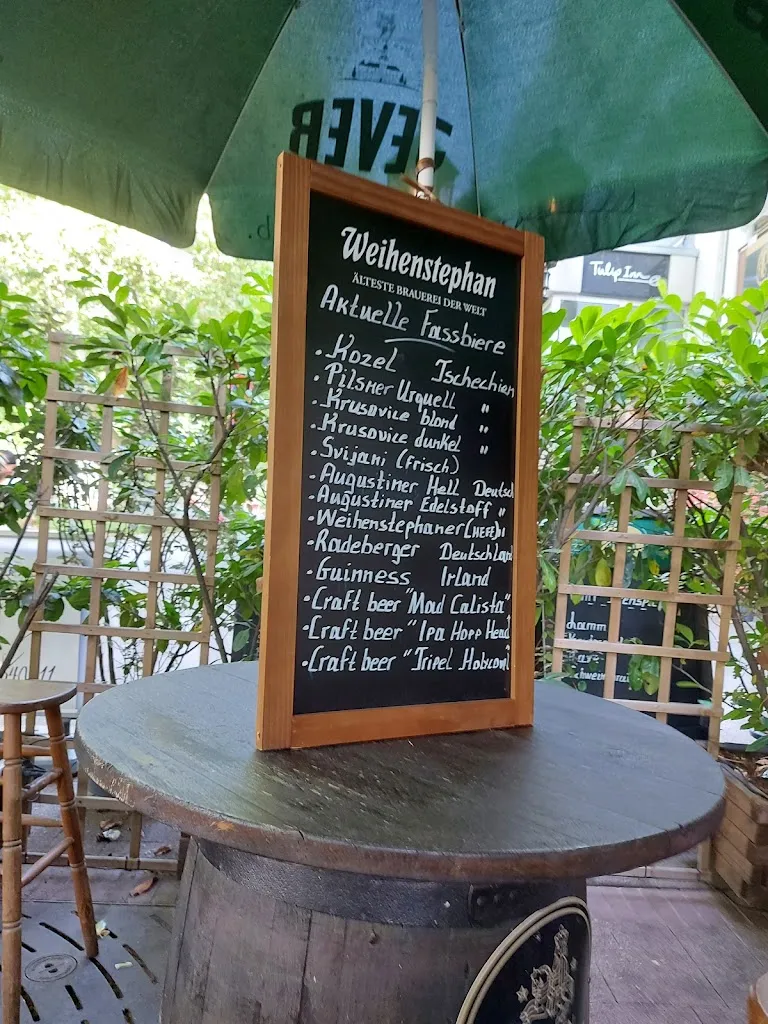 JEVER
Tulip Inn
Weihenstephan
ÄLTESTE BRAUEREI DER WELT
Aktuelle Fassbiere
• Kozel Tschechien
• Pilsner Urquell "
• Krusovice blond "
• Krusovice dunkel "
• Svijani (frisch)
• Augustiner Hell Deutschl
• Augustiner Edelstoff "
• Weihenstephaner (HEFE) "
• Radeberger Deutschland
• Guinness Irland
• Craft beer "Mad Calista"
• Craft beer "Ipa Hopp Head
• Craft beer "Tripel Hobcowl